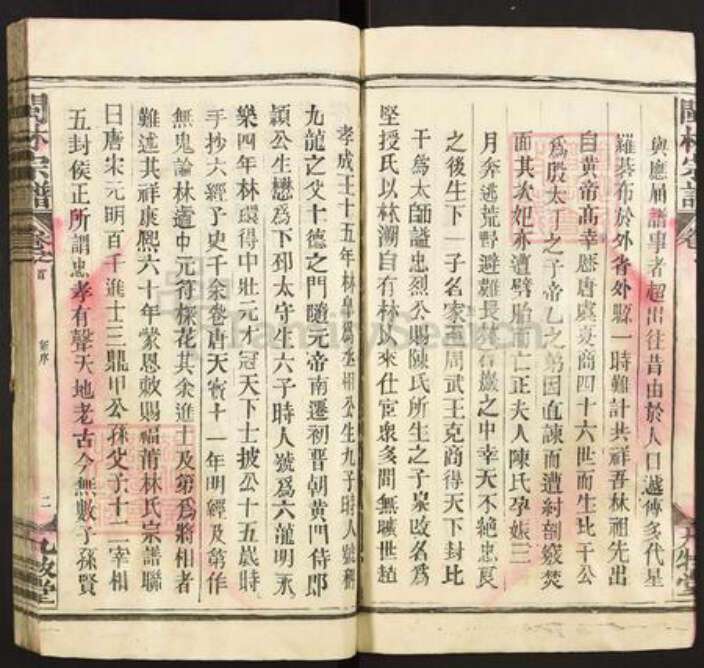 與應届諸事者超出往昔由於人口遞傳多代星
羅碁布於外省外縣一時難計共祥吾林祖先出
自黃帝高辛歷唐虞夏商四十六世而生比干公
爲殷太丁之子帝乙之弟因直諫而遭紂剖竅焚
面其次妃亦遭劈胎而仁正夫人陳氏孕娠三
月奔逃荒野避難長林石巖之中幸天不絶忠良
之後生下一子名家至周武王克商得天下封比
干爲太師諡忠烈公賜陳氏所生之子泉改名爲
堅授氏以林溯自有林以來仕宦衆多間無曠世
孝成王十五年林皐爲丞相公生九子時人號稱
九龍之父十德之門隨元帝南遷初晉朝黃門侍郎
穎公生懋爲下邳太守生六子時人號爲六龍明永
樂四年林環得中壯元才冠天下士披公十五歲時
手抄六經子史千余卷唐天寶十一年明經及第作
無鬼論林遵中元符探花其余進士及第爲將相者
難述其祥康熙六十年蒙恩敕賜福莆林氏宗譜聯
曰唐宋元明百千進士三鼎甲公孫父子十二宰相
五封侯正所謂忠孝有聲天地老古今無數子孫賢
閩林宗譜
卷之首
新序
二
九牧堂
閩林宗譜
卷
九牧堂
FamilySearch